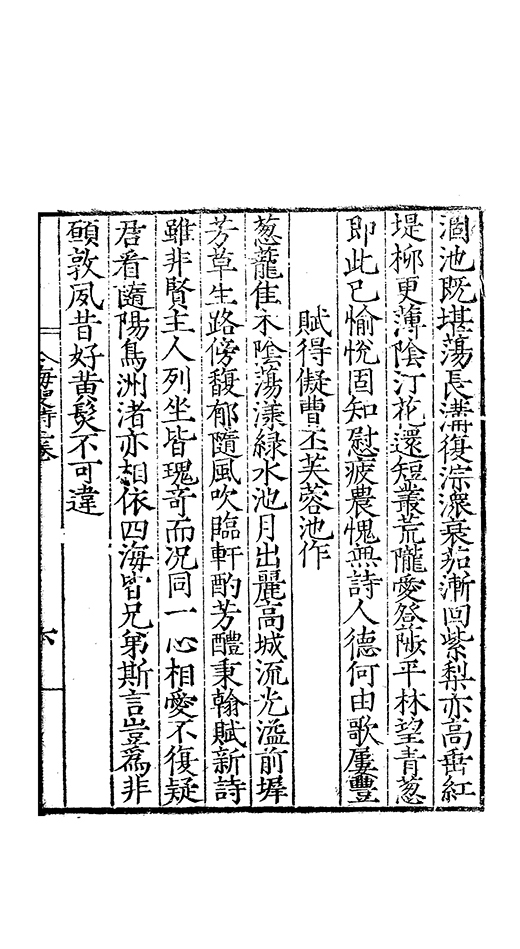 涸池既堪蕩長溝復淙潀衰茄漸回紫梨亦高垂紅
堤柳更薄陰汀花還短叢荒隴愛登陂平林望青葱
即此已愉悅固知慰疲農愧無詩人德何由歌屢豐
賦得儗曹丕芙蓉池作
葱蘢佳木陰蕩漾緑水池月出麗高城流光溢前墀
芳草生路傍馥郁隨風吹臨軒酌芳醴秉翰賦新詩
雖非賢主人列坐皆瑰奇而况同一心相愛不復疑
君看隨陽鳥洲渚亦相依四海皆兄弟斯言豈爲非
頋敦夙昔好黄髪不可違
海叟詩卷
六